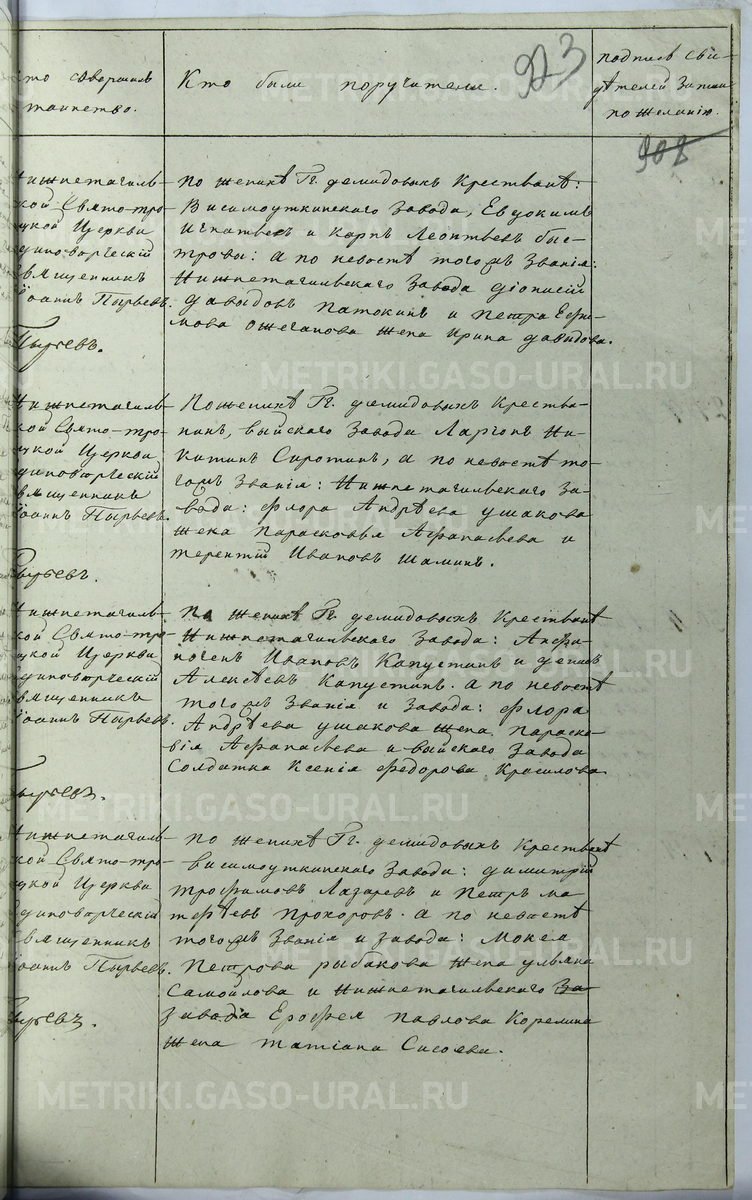 Кто совершилъ
таинство.
Кто были поручители.
923
подпись сви-
дѣтелей записи
по желанію.
908
Нижнетагиль-
кой Свято-тро-
цкой Церкви
диновѣрческій
священникъ
Іоаннъ Пырьевъ.
Пырьевъ.
По женихѣ Гг. Демидовыхъ крестьяне:
Висимоуткинскаго Завода, Евдокимъ
Игнатьевъ и Карпъ Леонтьевъ Быс-
тровы: а по невѣстѣ тогожъ званія:
Нижнетагильскаго Завода Діонисій
Давыдовъ Патокинъ и Петра Ефи-
мова Ожегапова жена Ирина Давидова.
Нижнетагиль-
кой Свято-тро-
цкой Церкви
диновѣрческій
священникъ
Іоаннъ Пырьевъ.
Пырьевъ.
По женихѣ Гг. Демидовыхъ крестья-
нинъ, Выйскаго Завода Ларіонъ Ни-
китинъ Сиротинъ, а по невѣстѣ то-
гожъ званія: Нижнетагильскаго За-
вода: Флора Андрѣева Ушакова
жена Парасковья Афанасьева и
Терентій Ивановъ Шаминъ.
Нижнетагиль-
кой Свято-тро-
цкой Церкви
диновѣрческій
священникъ
Іоаннъ Пырьевъ.
Пырьевъ.
По женихѣ Гг. Демидовыхъ крестьяне
Нижнетагильскаго Завода: Анфи-
ногенъ Ивановъ Капустинъ и Денисъ
Алексѣевъ Капустинъ. а по невѣстѣ
тогожъ званія и завода: Флора
Андрѣева Ушакова жена Параско-
вія Афанасьева и Выйскаго Завода
Солдатка Ксенія Федорова Красилова
Нижнетагиль-
кой Свято-тро-
цкой Церкви
диновѣрческій
священникъ
Іоаннъ Пырьевъ.
Пырьевъ.
По женихѣ Гг. Демидовыхъ крестьяне
Висимоуткинскаго Завода: Димитрій
Трофимовъ Лазаревъ и Петръ Ма-
тфѣевъ Прохоровъ. а по невѣстѣ
тогожъ званія и завода: Мокея
Петрова Рыбакова жена Ульяна
Самойлова и Нижнетагильскаго За-
завода Ерофея Павлова Корелина
жена Татіана Сисоева.
METRIKI.GASO-URAL.RU
METRIKI.GASO-URAL.RU
METRIKI.GASO-URAL.RU
METRIKI.GASO-URAL.RU
METRIKI.GASO-URAL.RU
METRIKI.GASO-URAL.RU
METRIKI.GASO-URAL.RU